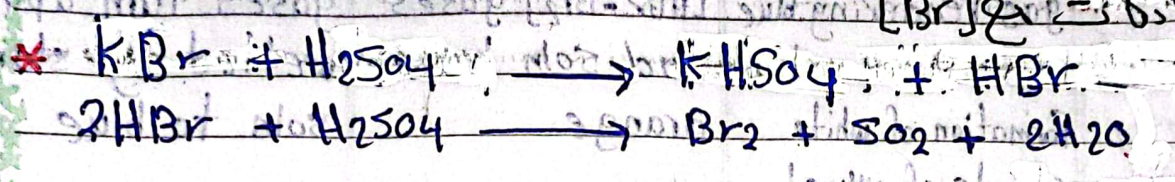 * KBr + H2SO4 ⟶ KHSO4 + HBr
2HBr + H2SO4 ⟶ Br2 + SO2 + 2H2O